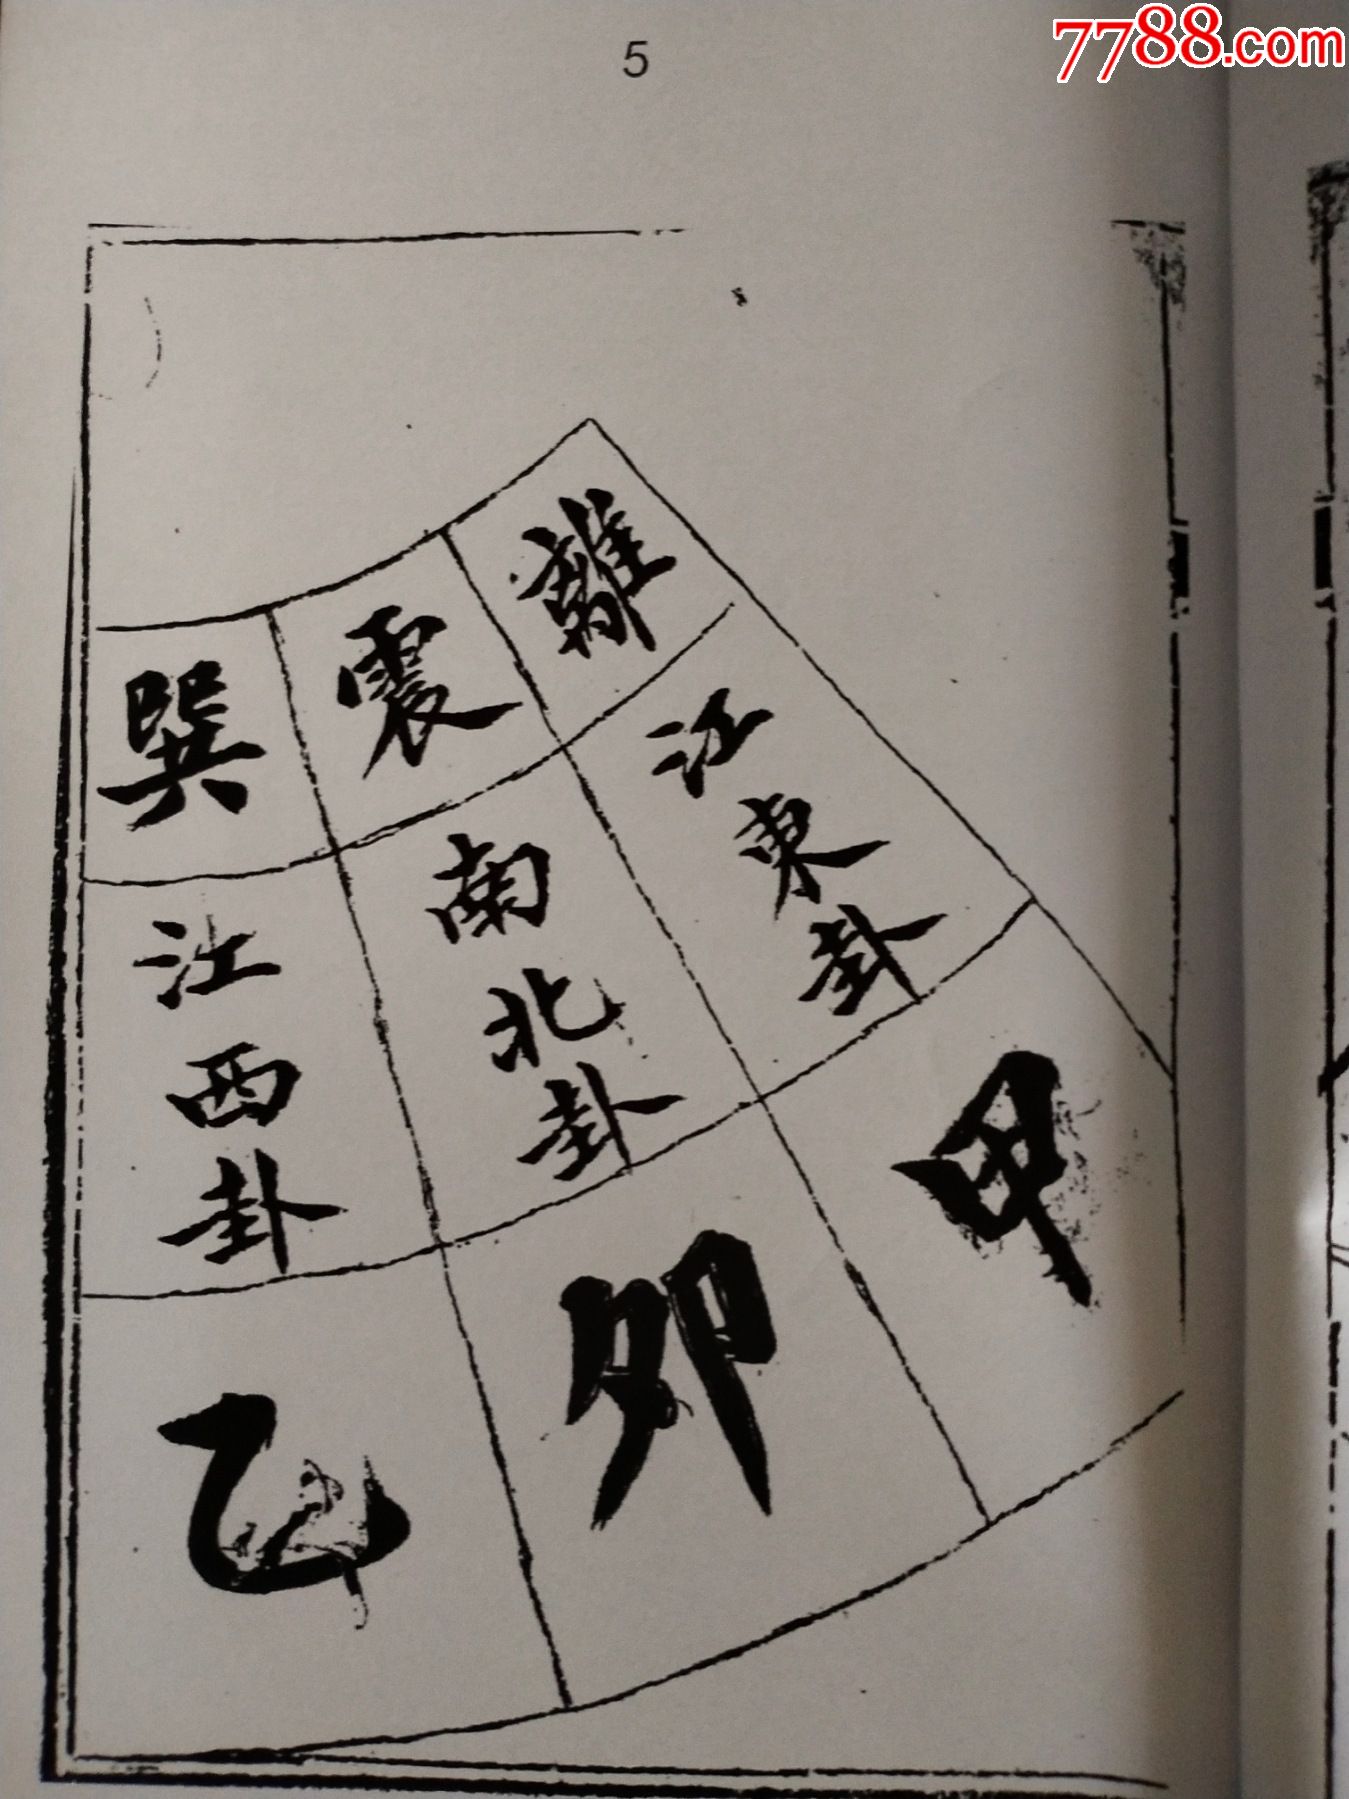 7788.com
5
離
江東卦
甲
震
南北卦
卯
巽
江西卦
乙